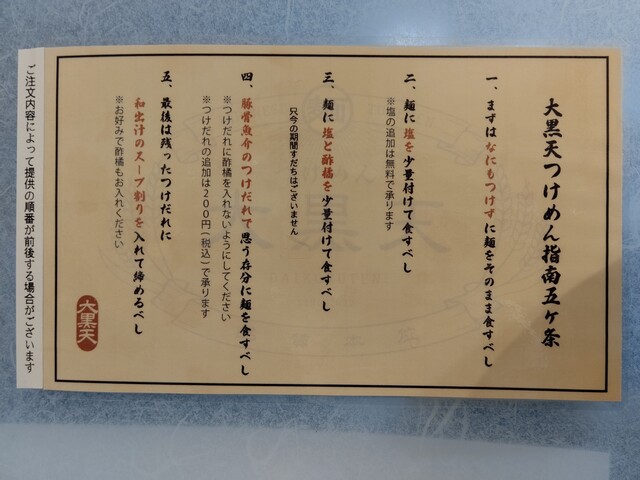 大黒天つけめん指南五ヶ条
一、まずはなにもつけずに麺をそのまま食すべし
二、麺に塩を少量付けて食すべし
※塩の追加は無料で承ります
三、麺に塩と酢橘を少量付けて食すべし
只今の期間すだちはございません
四、豚骨魚介のつけだれで思う存分に麺を食すべし
※つけだれに酢橘を入れないようにしてください
※つけだれの追加は200円(税込)で承ります
五、最後は残ったつけだれに
和出汁のスープ割りを入れて締めるべし
※お好みで酢橘もお入れください
大黒天
ご注文内容によって提供の順番が前後する場合がございます